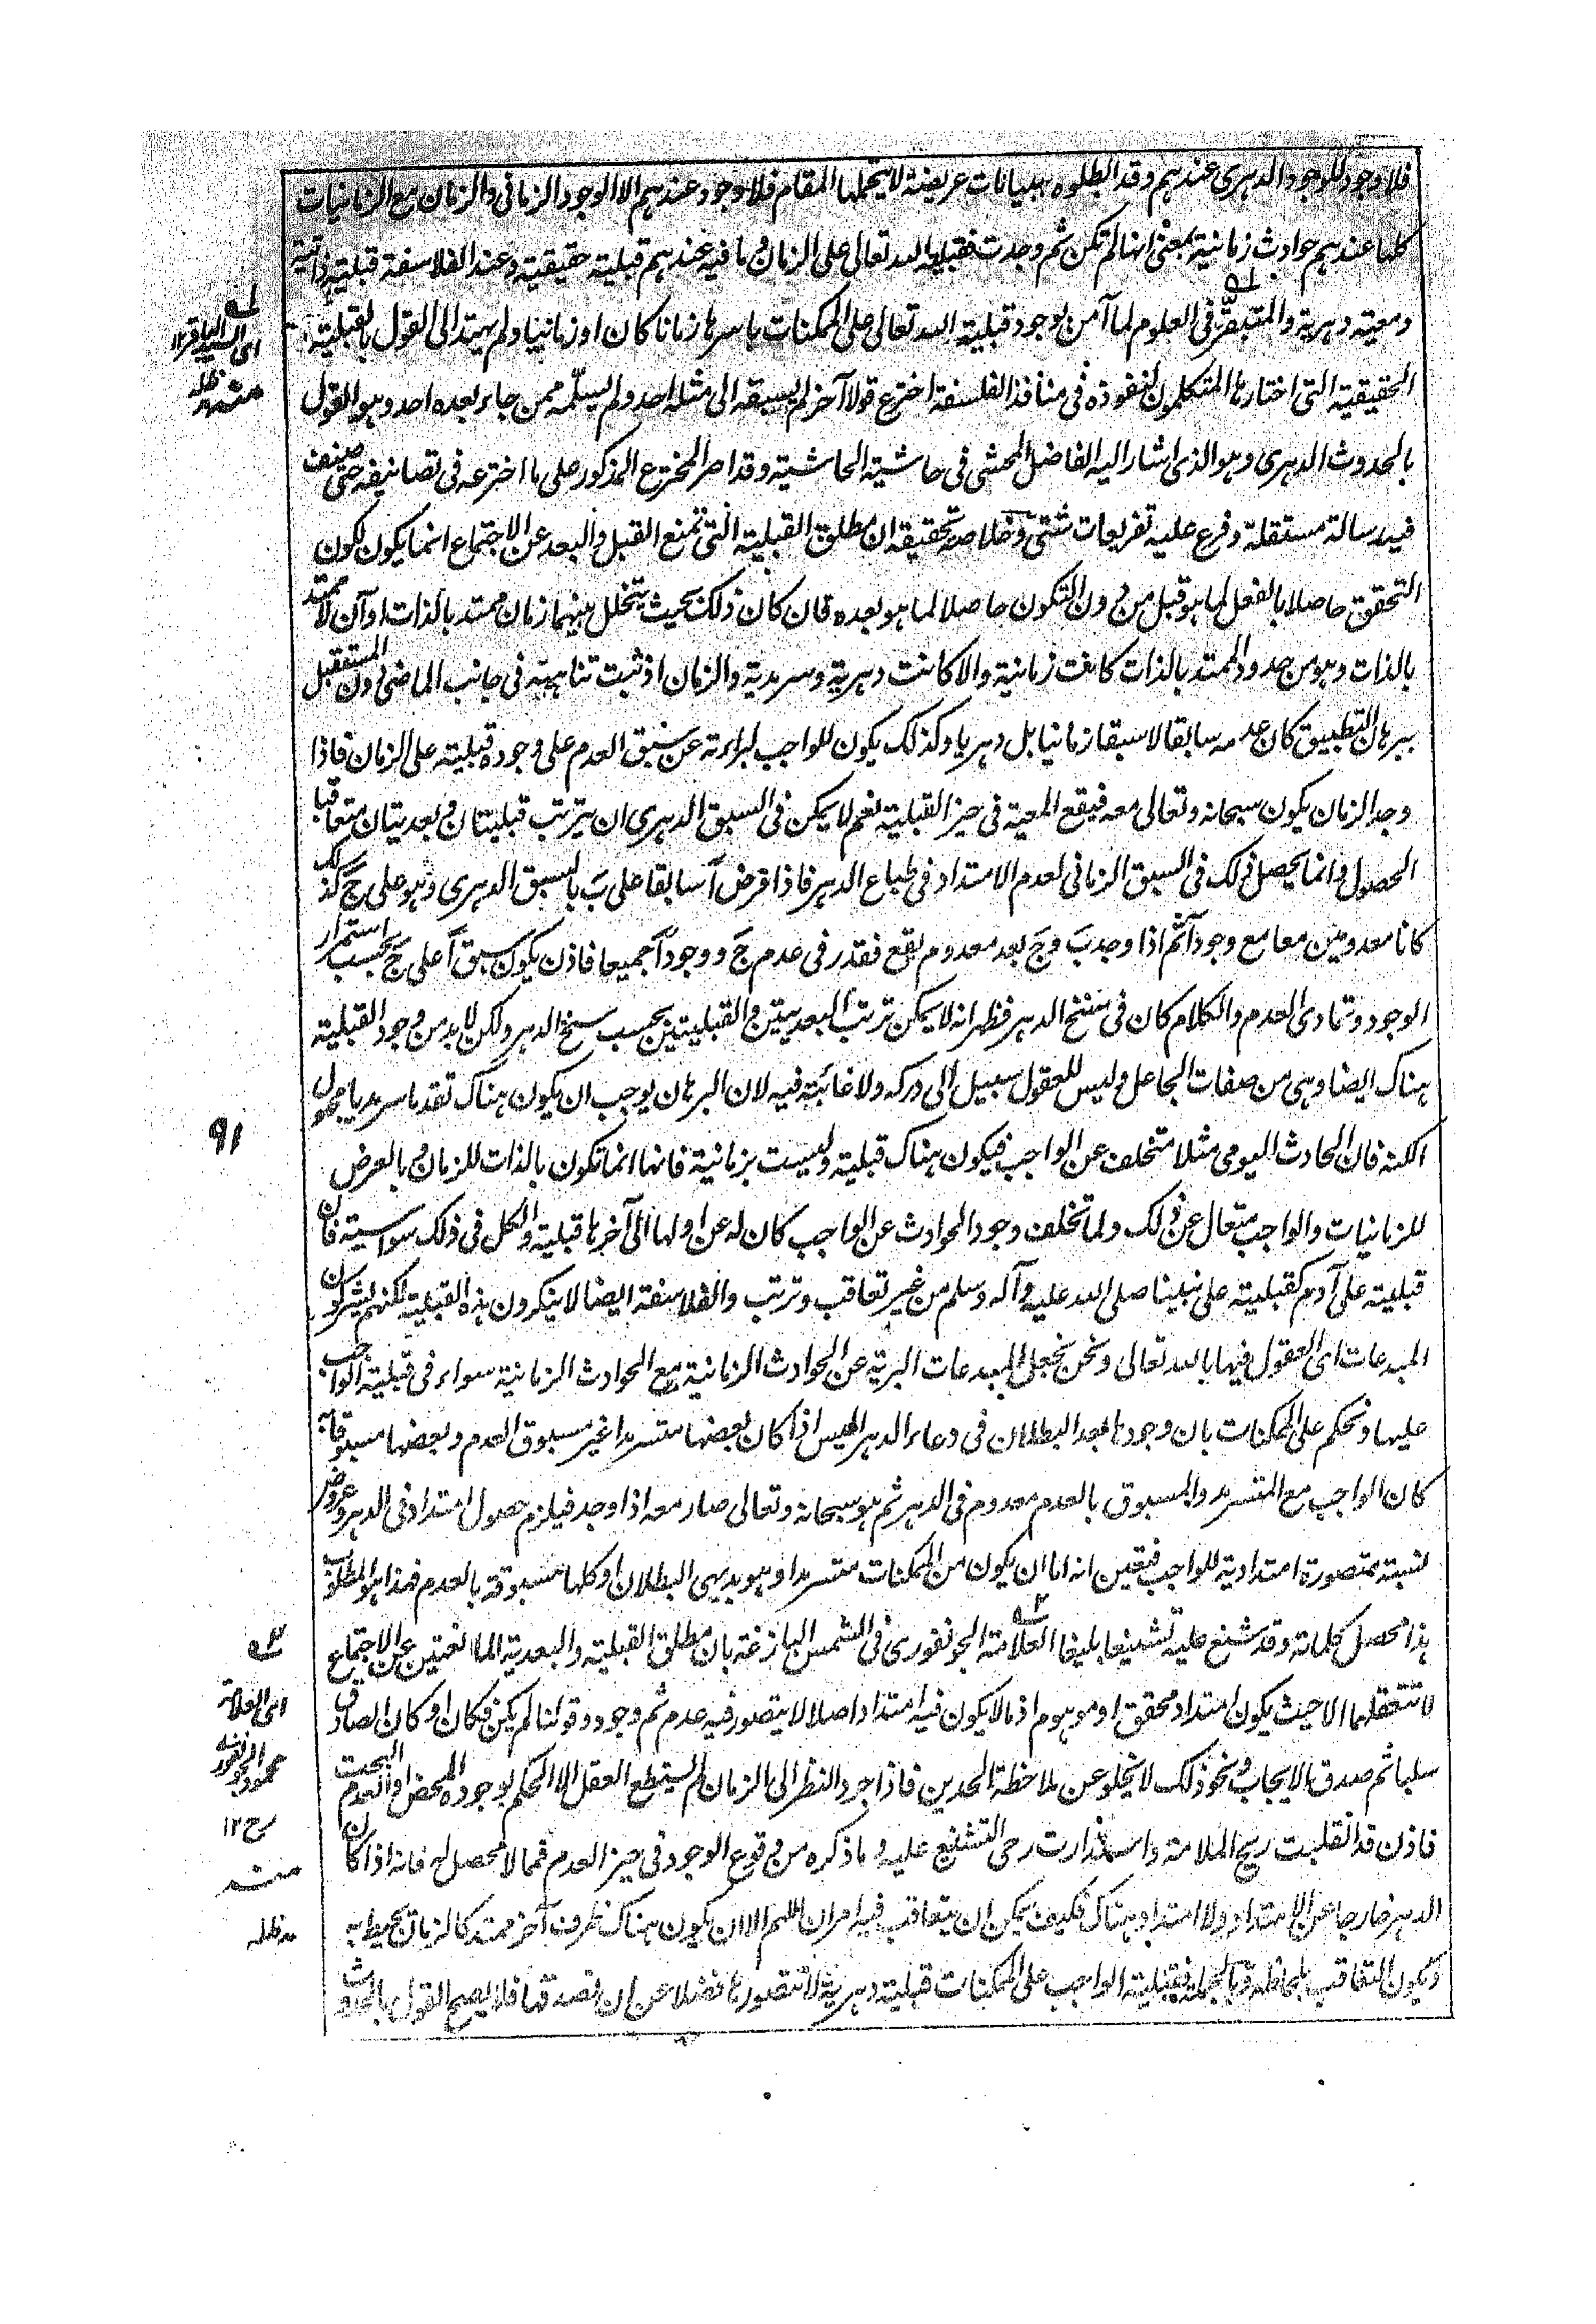 فلا وجود للوجود الدهرى عندهم وقد ابطلوه ببيانات عريضة لا يتحملها المقام فلا وجود عندهم الا الوجود الزمانى والزمان مع الزمانيات
كلها عندهم حوادث زمانية بمعنى انها لم تكن ثم وجدت فقبلية الله تعالى على الزمان وما فيه عندهم قبلية حقيقية وعند الفلاسفة قبلية ذاتية
ومعية دهرية والمتبحر فى العلوم لما آمن بوجود قبلية الله تعالى على الممكنات باسرها زمانا كان او زمانيا ولم يهتد الى القول بالقبلية
الحقيقية التى اختارها المتكلمون لنفوذه فى منافذ الفلسفة اخترع قولا آخر لم يسبقه الى مثله احد ولم يسلمه ممن جاء بعده احد وهو القول
بالحدوث الدهرى وهو الذى اشار اليه الفاضل المحشى فى حاشية الحاشية وقد اصر المخترع المذكور على ما اخترعه فى تصانيفه حتى صنف
فيه رسالة مستقلة وفرع عليه تفريعات شتى وخلاصة تحقيقه ان مطلق القبلية التى تمنع القبل والبعد عن الاجتماع انما يكون لكون
التحقق حاصلا بالفعل لما هو قبل من دون التكون حاصلا لما هو بعده فان كان ذلك بحيث يتخلل بينهما زمان ممتد بالذات او آن لا ممتد
بالذات وهو من حدود الممتد بالذات كانت زمانية والا كانت دهرية وسرمدية والزمان اذ ثبت تناهيه فى جانب الماضى دون المستقبل
ببرهان التطبيق كان عدمه سابقا لا سبقا زمانيا بل دهريا وكذلك يكون للواجب لبراءته عن سبق العدم على وجوده قبلية على الزمان فاذا
وجد الزمان يكون سبحانه وتعالى معه فيقع المعية فى حيز القبلية نعم لا يمكن فى السبق الدهرى ان يترتب قبليتان وبعديتان متعاقبا
الحصول وانما يحصل ذلك فى السبق الزمانى لعدم الامتداد فى طباع الدهر فاذا فرض آ سابقا على ب بالسبق الدهرى وهو على ج كذلك
كانا معدومين معا مع وجود آ ثم اذا وجد ب و ج بعد معدوم يقع فقد رفى عدم ج ووجود آ جميعا فاذن يكون سبق آ على ج بحسب استمرار
الوجود وتمادى العدم والكلام كان فى سنخ الدهر فظهر انه لا يمكن ترتب البعديتين والقبليتين بحسب سنخ الدهر ولكن لا بد من وجود القبلية
هناك ايضا وهى من صفات الجاعل وليس للعقول سبيل الى دركه ولا غائبة فيه لان البرهان يوجب ان يكون هناك تقدما سرمديا مجهول
الكنه فان الحادث اليومى مثلا متخلف عن الواجب فيكون هناك قبلية وليست بزمانية فانها انما تكون بالذات للزمان وبالعرض
للزمانيات والواجب متعال عن ذلك ولما تخلف وجود الحوادث عن الواجب كان له عن اولها الى آخرها قبلية والكل فى ذلك سواسية فان
قبلية على آدم كقبلية على نبينا صلى الله عليه وآله وسلم من غير تعاقب وترتب والفلاسفة ايضا لا ينكرون هذه القبلية لكنهم يشركون
المبدعات اى العقول فيها بالله تعالى ونحن نجعل المبدعات البرية عن الحوادث الزمانية مع الحوادث الزمانية سواء فى قبلية الواجب
عليها ونحكم على الممكنات بان وجودها بعد البطلان فى وعاء الدهر اليس اذا كان بعضها متسرمدا غير مسبوق العدم وبعضها مسبوقا به
كان الواجب مع المتسرمد والمسبوق بالعدم معدوم فى الدهر ثم هو سبحانه وتعالى صار معه اذا وجد فيلزم حصول امتداد فى الدهر وعروض
نسبة متصورة امتدادية للواجب فيقين انه اما ان يكون من الممكنات متسرمدا وهو بديهى البطلان او كلها مسبوقة بالعدم فهذا هو المطلوب
هذا محصل كلماته وقد شنع عليه تشنيعا بليغا العلامة الجونفورى فى الشمس البازغة بان مطلق القبلية والبعدية المانعتين عن الاجتماع
لا تتعقلهما الا حيث يكون امتداد محقق او موهوم اذ ما لا يكون فيه امتداد اصلا لا يتصور فيه عدم ثم وجود وقولنا لم يكن فكان او كان الصادق
سلبا ثم صدق الايجاب ونحو ذلك لا يخلو عن ملاحظة الحدين فاذا جرد النظر الى الزمان لم يستطع العقل الا الحكم بوجوده المحض او العدم البحت
فاذن قد انقلبت ريح الملامة واستدارت رحى التشنيع عليه وما ذكره من وقوع الوجود فى حيز العدم فمما لا محصل له فانه اذا كان
الدهر خارجا عن الامتداد ولا امتداد هناك فكيف يمكن ان يتعاقب فيه امران اللهم الا ان يكون هناك ظرف آخر ممتد كالزمان يحيط به
ويكون التعاقب بلحاظه وبالجملة فقبلية الواجب على الممكنات قبلية دهرية لا نتصورها فضلا عن ان نصدقها فلا يصح القول بالحدوث
اى السيد الباقر ١٢
منه مد ظله
٩١
اى العلامة
محمود الجونفورى
رح ١٢
منه
مد ظله